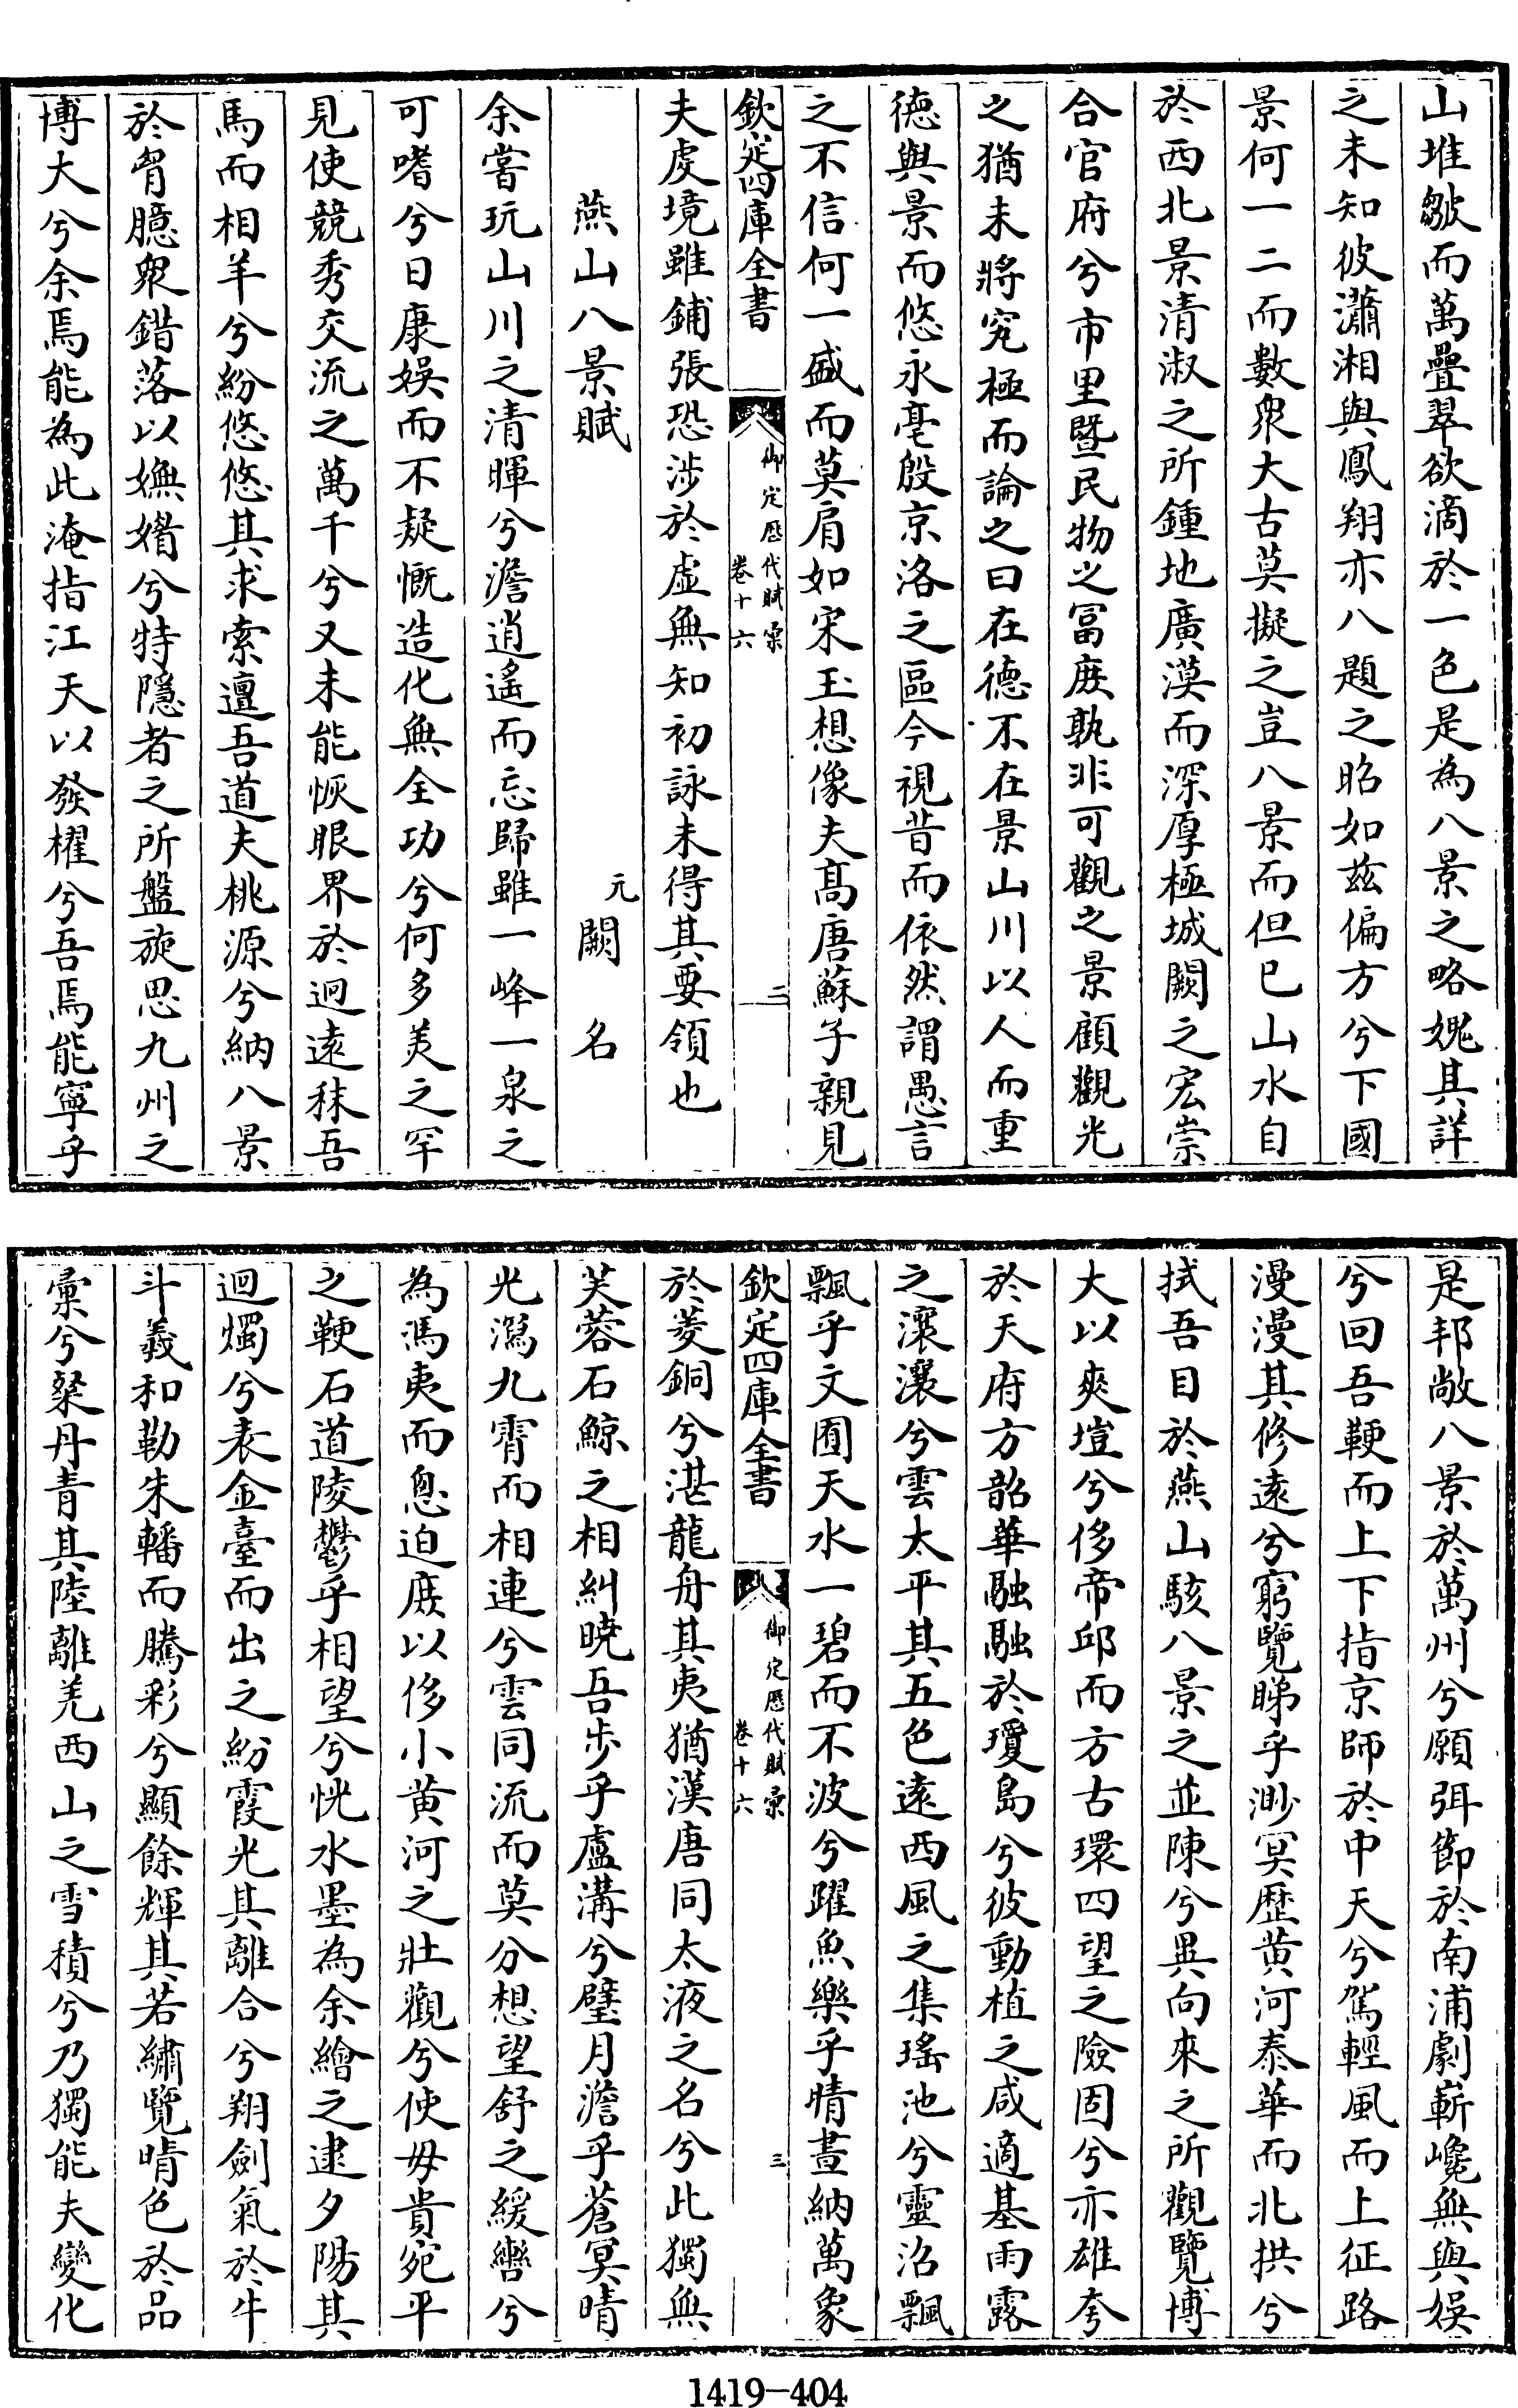 山堆皺而萬疊翠欲滴於一色是為八景之略媿其詳
之未知彼瀟湘與鳳翔亦八題之昭如兹偏方兮下國
景何一二而數衆大古莫擬之豈八景而但已山水自
於西北景清淑之所鍾地廣漠而深厚極城闕之宏崇
合官府兮市里暨民物之富庶孰非可觀之景顧觀光
之猶未將究極而論之曰在徳不在景山川以人而重
徳與景而悠永亳殷京洛之區今視昔而依然謂愚言
之不信何一盛而莫肩如宋玉想像夫髙唐蘇子親見
欽定四庫全書
御定歴代賦彙
卷十六
二
夫處境雖鋪張恐涉於虚無知初詠未得其要領也
燕山八景賦
元闕名
余嘗玩山川之清暉兮澹逍遙而忘歸雖一峰一泉之
可嗜兮日康娱而不疑慨造化無全功兮何多美之罕
見使競秀交流之萬千兮又未能恢眼界於迥遠秣吾
馬而相羊兮紛悠悠其求索邅吾道夫桃源兮納八景
於胷臆衆錯落以嫵媚兮特隱者之所盤旋思九州之
博大兮余焉能為此淹指江天以發櫂兮吾焉能寧乎
是邦敞八景於萬州兮願弭節於南浦劇嶄巉無與娱
兮回吾鞕而上下指京師於中天兮駕輕風而上征路
漫漫其修遠兮窮覽睇乎渺冥歴黄河泰華而北拱兮
拭吾目於燕山駭八景之並陳兮異向來之所觀覽博
大以爽塏兮侈帝邱而方古環四望之險固兮亦雄夸
於天府方韶華融融於瓊島兮彼動植之咸適基雨露
之瀼瀼兮雲太平其五色逺西風之集瑤池兮靈沼飄
飄乎文囿天水一碧而不波兮躍魚樂乎晴晝納萬象
欽定四庫全書
御定歴代賦彙
卷十六
三
於菱銅兮湛龍舟其夷猶漢唐同太液之名兮此獨無
芙蓉石鯨之相糾曉吾步乎盧溝兮璧月澹乎蒼冥晴
光瀉九霄而相連兮雲同流而莫分想望舒之緩轡兮
為馮夷而悤迫庶以侈小黄河之壯觀兮使毋貴宛平
之鞕石道陵鬱乎相望兮恍水墨為余繪之逮夕陽其
迴燭兮表金臺而出之紛霞光其離合兮翔劍氣於牛
斗羲和勒朱轓而騰彩兮顯餘輝其若繡覽晴色於品
彙兮粲丹青其陸離羌西山之雪積兮乃獨能夫變化
1419-404